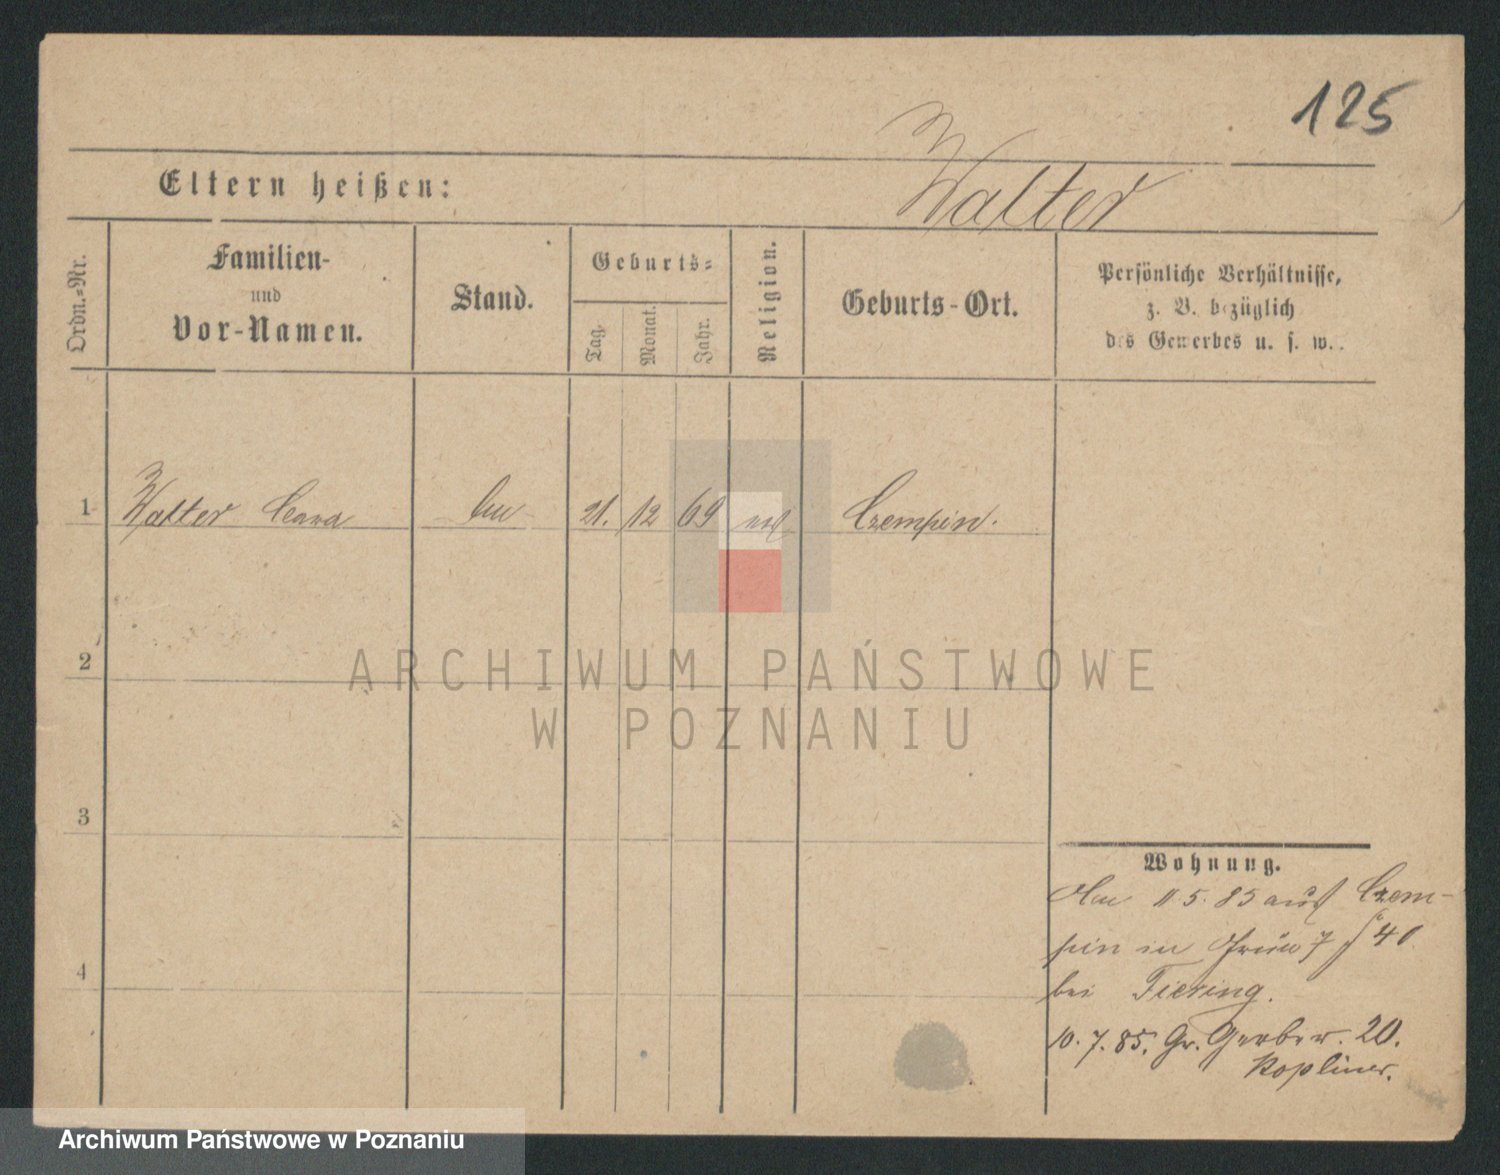 125
Eltern heißen:
Walter
Ordn.=Nr.
Familien-
und
Vor-Namen.
Stand.
Geburts=
Tag.
Monat.
Jahr.
Religion.
Geburts-Ort.
Persönliche Verhältnisse,
z. B. bezüglich
des Gewerbes u. s. w.
1 Walter 21. 12 69 Czempin.
2
3
4
ARCHIWUM PAŃSTWOWE
W POZNANIU
Wohnung.
11.5.85 aus Czem-
pin in Grün 7 40
bei Tiering.
10.7.85. Gr. Gerber. 20.
Kopliner.
Archiwum Państwowe w Poznaniu